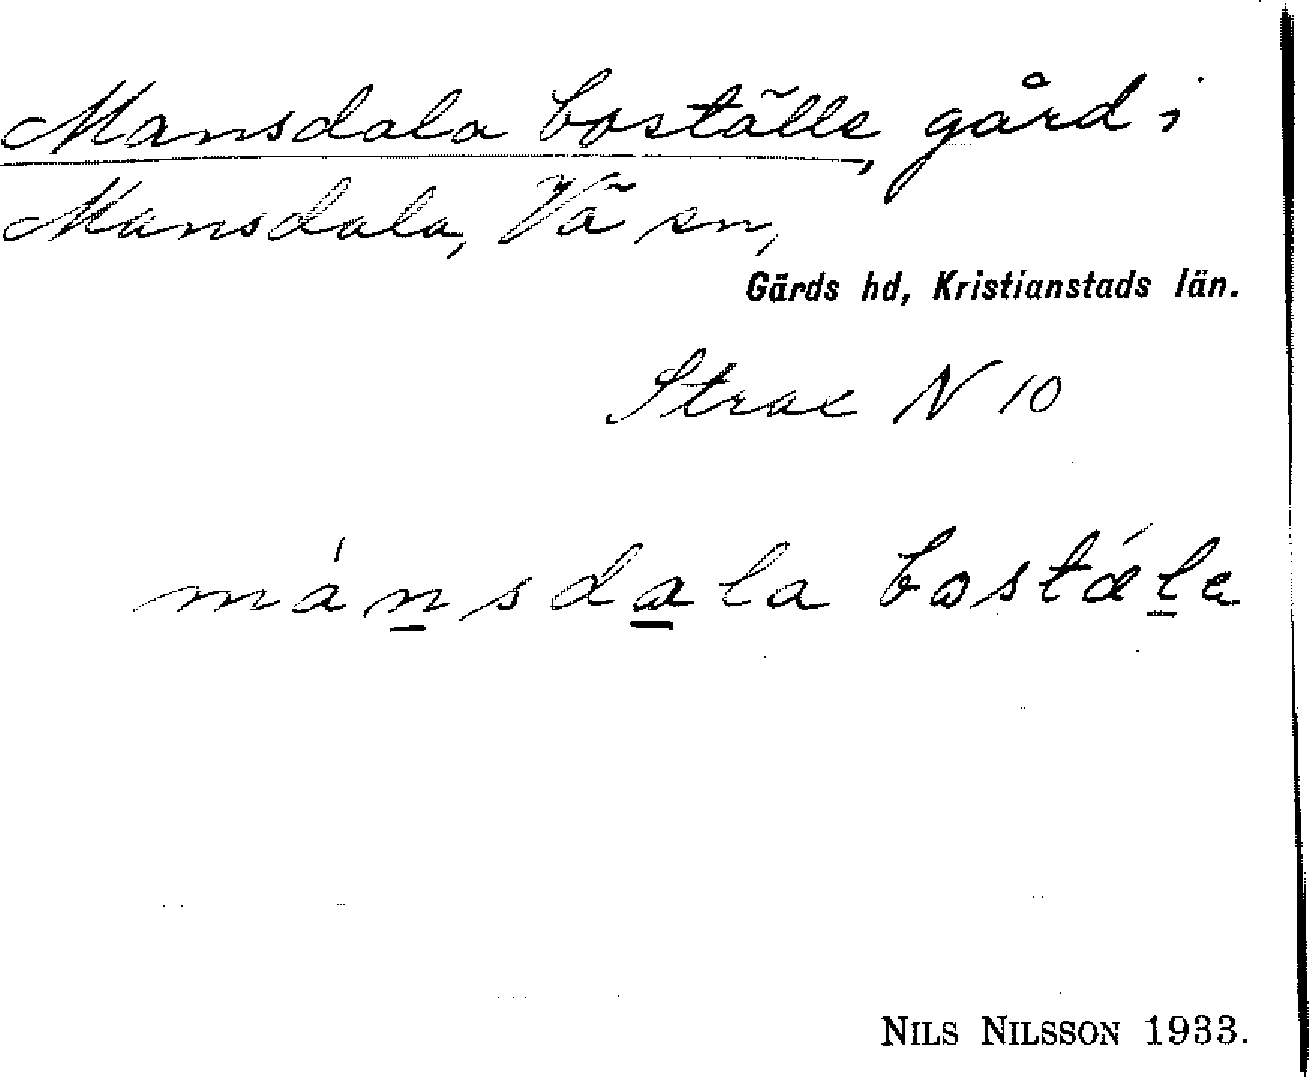 Mansdala boställe, gård i
Mansdala, Vä sn,
Gärds hd, Kristianstads län.
N 10
mánsdala bostǽle
NILS NILSSON 1933.